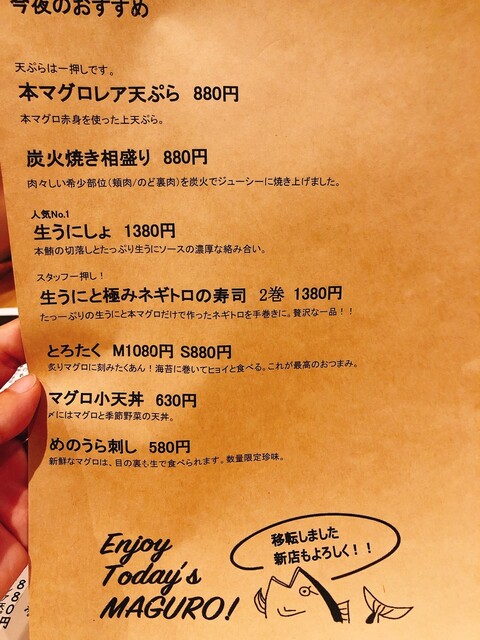 今夜のおすすめ
天ぷらは一押しです。
本マグロレア天ぷら 880円
本マグロ赤身を使った上天ぷら。
炭火焼き相盛り 880円
肉々しい希少部位(頬肉/のど裏肉)を炭火でジューシーに焼き上げました。
人気No.1
生うにしょ 1380円
本鮪の切落しとたっぷり生うにソースの濃厚な絡み合い。
スタッフ一押し！
生うにと極みネギトロの寿司 2巻 1380円
たっーぷりの生うにと本マグロだけで作ったネギトロを手巻きに。贅沢な一品！！
とろたく M1080円 S880円
炙りマグロに刻みたくあん！海苔に巻いてヒョイと食べる。これが最高のおつまみ。
マグロ小天丼 630円
〆にはマグロと季節野菜の天丼。
めのうら刺し 580円
新鮮なマグロは、目の裏も生で食べられます。数量限定珍味。
移転しました
新店もよろしく！！
Enjoy
Today's
MAGURO!